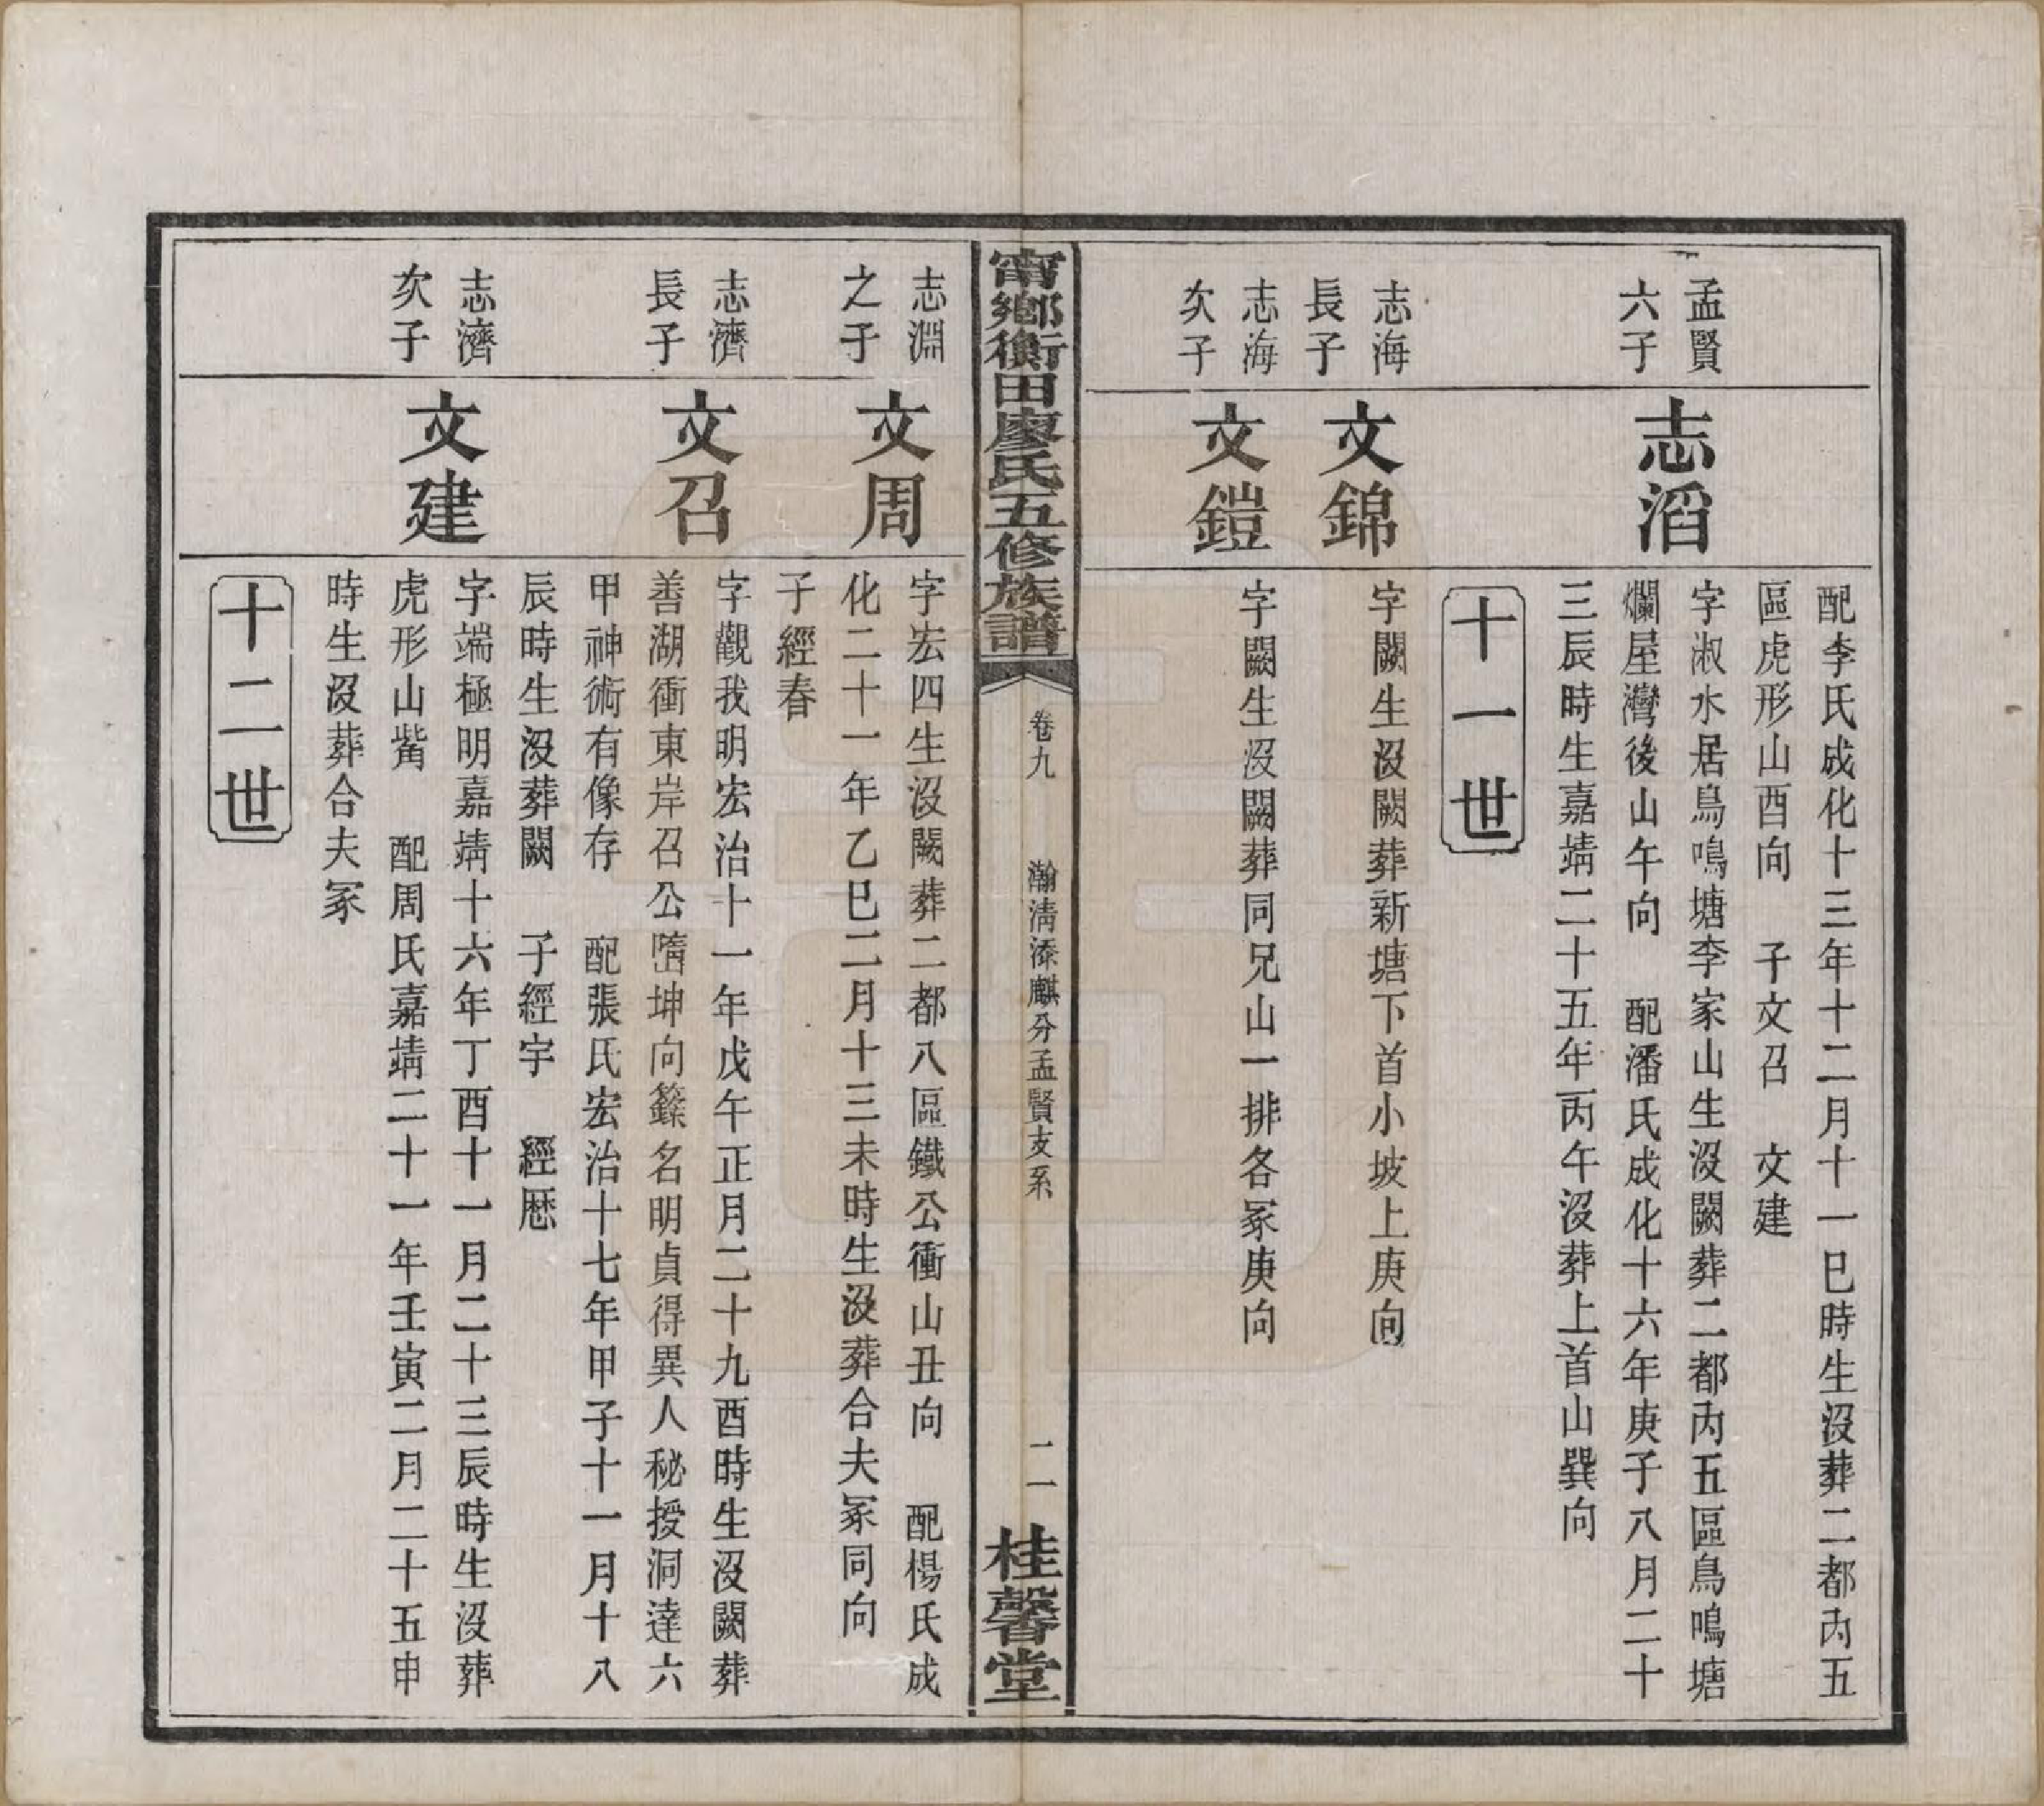 配李氏成化十三年十二月十一巳時生沒葬二都內五
區虎形山酉向　子文召　文建
孟賢
六子
志滔
字淑水居鳥鳴塘李家山生沒闕葬二都內五區鳥鳴塘
爛屋灣後山午向　配潘氏成化十六年庚子八月二十
三辰時生嘉靖二十五年丙午沒葬上首山巽向
十一世
志海
長子
文錦
字闕生沒闕葬新塘下首小坡上庚向
志海
次子
文鎧
字闕生沒闕葬同兄山一排各冢庚向
甯鄉衡田廖氏五修族譜
卷九
瀚清添麒分孟賢支系
二一
桂馨堂
志淵
之子
文周
字宏四生沒闕葬二都八區鐵公衝山丑向　配楊氏成
化二十一年乙巳二月十三未時生沒葬合夫冢同向
子經春
志濟
長子
文召
字觀我明宏治十一年戊午正月二十九酉時生沒闕葬
善湖衝東岸召公坤向籙名明貞得異人秘授洞達六
甲神術有像存　配張氏宏治十七年甲子十一月十八
辰時生沒葬闕　子經宇　經歷
志濟
次子
文建
字端極明嘉靖十六年丁酉十一月二十三辰時生沒葬
虎形山觜　配周氏嘉靖二十一年壬寅二月二十五申
時生沒葬合夫冢
十二世